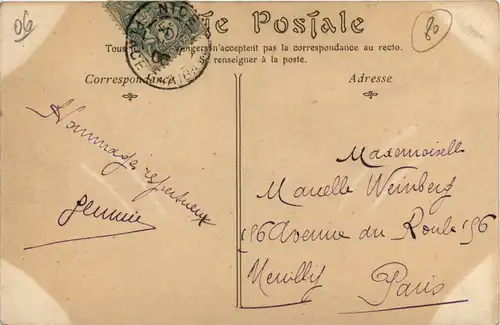 06
80
NICE
te Postale
Tous angers n'acceptent pas la correspondance au recto.
renseigner à la poste.
Correspondance
Adresse
Hommages respectueux
Mademoiselle
Marielle Weinberg
156 Avenue du Roule 156
Neuilly
Paris